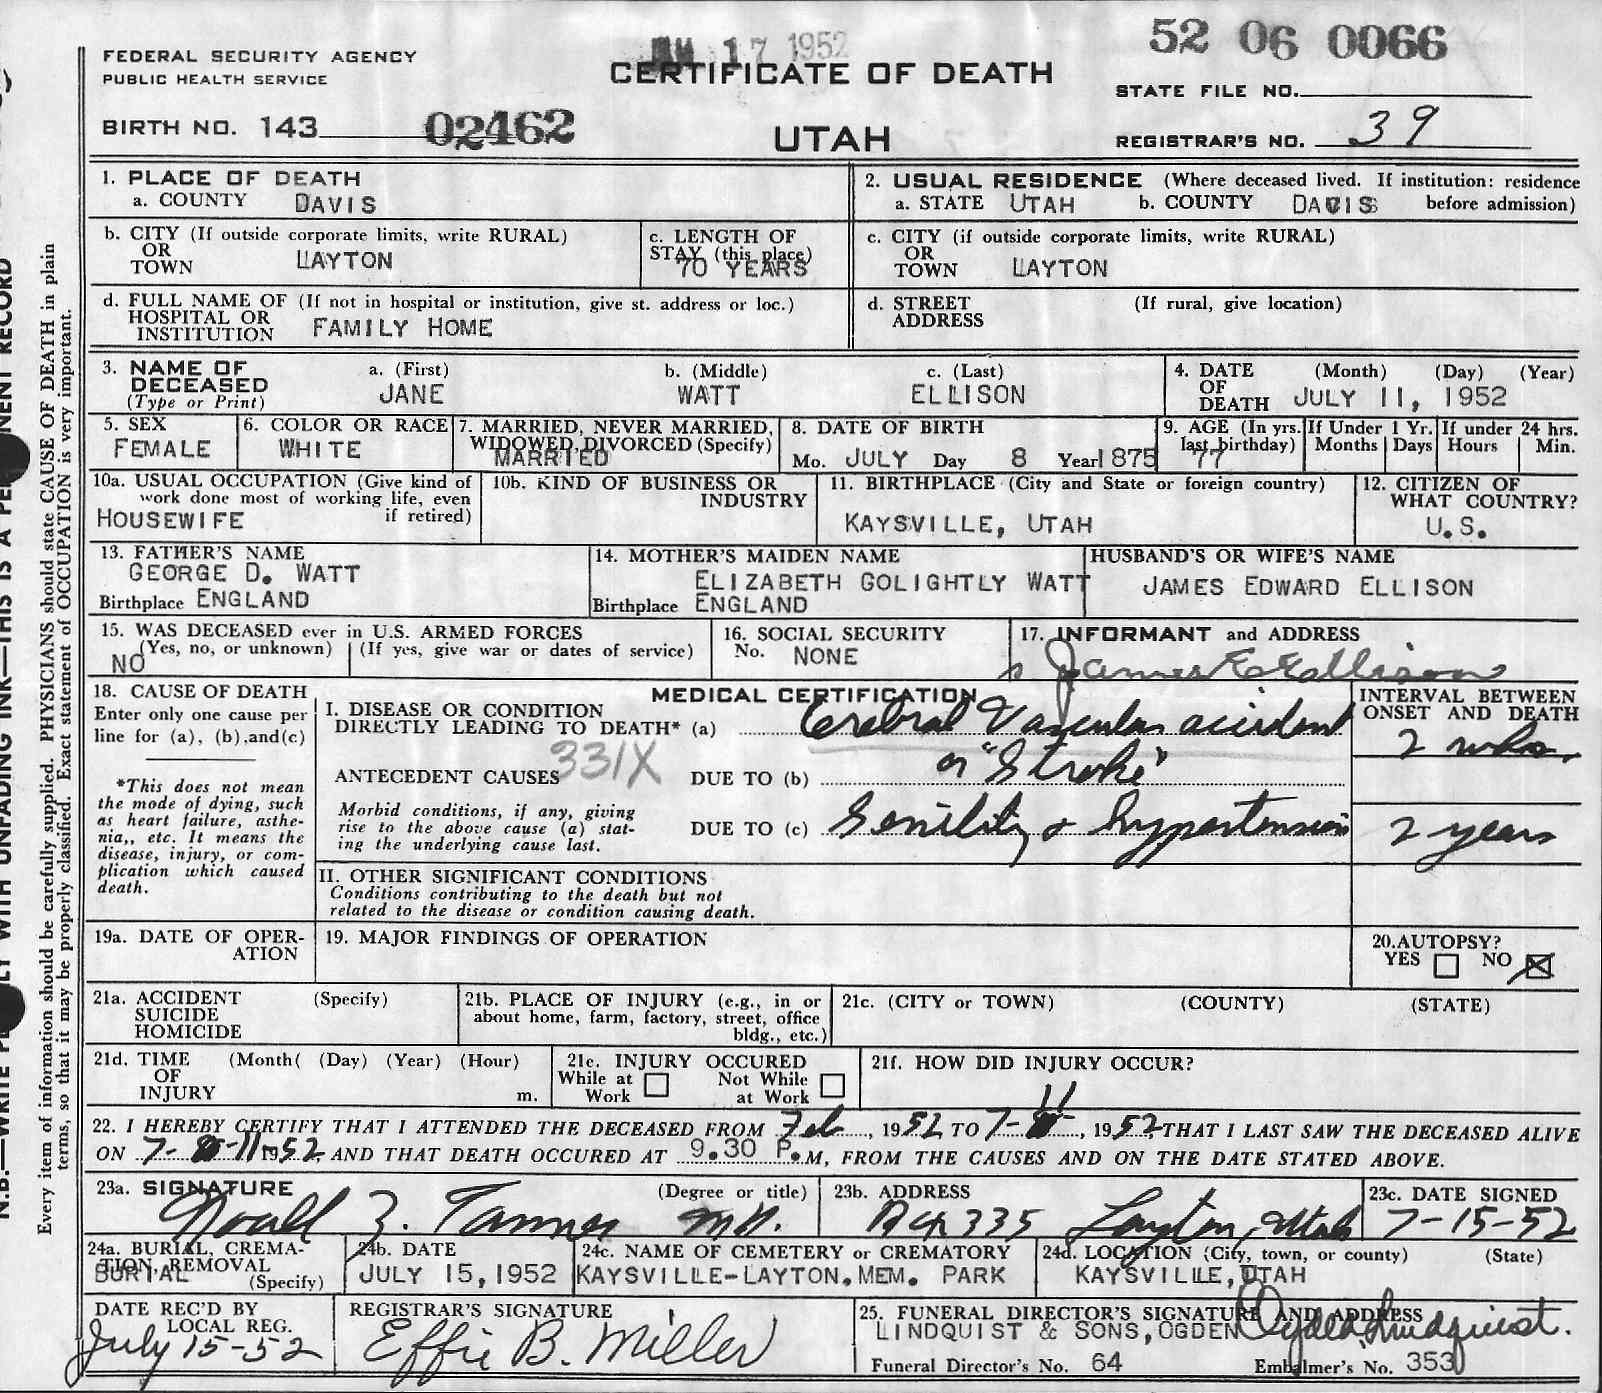 JUL 17 1952
52 06 0066
FEDERAL SECURITY AGENCY
PUBLIC HEALTH SERVICE
CERTIFICATE OF DEATH
STATE FILE NO.
BIRTH NO. 143 02462
UTAH
REGISTRAR'S NO. 39
1. PLACE OF DEATH
a. COUNTY DAVIS
2. USUAL RESIDENCE (Where deceased lived. If institution: residence before admission)
a. STATE UTAH b. COUNTY DAVIS
b. CITY (If outside corporate limits, write RURAL)
OR
TOWN LAYTON
c. LENGTH OF
STAY (this place)
70 YEARS
c. CITY (if outside corporate limits, write RURAL)
OR
TOWN LAYTON
d. FULL NAME OF (If not in hospital or institution, give st. address or loc.)
HOSPITAL OR
INSTITUTION FAMILY HOME
d. STREET (If rural, give location)
ADDRESS
3. NAME OF
DECEASED
(Type or Print)
a. (First)
JANE
b. (Middle)
WATT
c. (Last)
ELLISON
4. DATE (Month) (Day) (Year)
OF
DEATH JULY 11, 1952
5. SEX
FEMALE
6. COLOR OR RACE
WHITE
7. MARRIED, NEVER MARRIED,
WIDOWED, DIVORCED (Specify)
MARRIED
8. DATE OF BIRTH
Mo. JULY Day 8 Year 1875
9. AGE (In yrs.
last birthday)
77
If Under 1 Yr.
Months Days
If under 24 hrs.
Hours Min.
10a. USUAL OCCUPATION (Give kind of
work done most of working life, even
if retired)
HOUSEWIFE
10b. KIND OF BUSINESS OR
INDUSTRY
11. BIRTHPLACE (City and State or foreign country)
KAYSVILLE, UTAH
12. CITIZEN OF
WHAT COUNTRY?
U.S.
13. FATHER'S NAME
GEORGE D. WATT
Birthplace ENGLAND
14. MOTHER'S MAIDEN NAME
ELIZABETH GOLIGHTLY WATT
Birthplace ENGLAND
HUSBAND'S OR WIFE'S NAME
JAMES EDWARD ELLISON
15. WAS DECEASED ever in U.S. ARMED FORCES
(Yes, no, or unknown) (If yes, give war or dates of service)
NO
16. SOCIAL SECURITY
No. NONE
17. INFORMANT and ADDRESS
s James E Ellison
18. CAUSE OF DEATH
Enter only one cause per
line for (a), (b), and (c)
*This does not mean
the mode of dying, such
as heart failure, asthe-
nia,, etc. It means the
disease, injury, or com-
plication which caused
death.
MEDICAL CERTIFICATION
I. DISEASE OR CONDITION
DIRECTLY LEADING TO DEATH* (a) Cerebral Vascular accident
331X
ANTECEDENT CAUSES DUE TO (b) or "Stroke"
Morbid conditions, if any, giving
rise to the above cause (a) stat-
ing the underlying cause last.
DUE TO (c) Senility & hypertension
INTERVAL BETWEEN
ONSET AND DEATH
2 wks.
2 years
II. OTHER SIGNIFICANT CONDITIONS
Conditions contributing to the death but not
related to the disease or condition causing death.
19a. DATE OF OPER-
ATION
19. MAJOR FINDINGS OF OPERATION
20. AUTOPSY?
YES NO
21a. ACCIDENT (Specify)
SUICIDE
HOMICIDE
21b. PLACE OF INJURY (e.g., in or
about home, farm, factory, street, office
bldg., etc.)
21c. (CITY or TOWN) (COUNTY) (STATE)
21d. TIME (Month( (Day) (Year) (Hour)
OF
INJURY m.
21e. INJURY OCCURED
While at Work
Not While at Work
21f. HOW DID INJURY OCCUR?
22. I HEREBY CERTIFY THAT I ATTENDED THE DECEASED FROM Feb, 1952 TO 7-11, 1952, THAT I LAST SAW THE DECEASED ALIVE
ON 7-11 1952, AND THAT DEATH OCCURED AT 9.30 P.M, FROM THE CAUSES AND ON THE DATE STATED ABOVE.
23a. SIGNATURE (Degree or title)
Noall Z. Tanner M.D.
23b. ADDRESS
Box 335 Layton, Utah
23c. DATE SIGNED
7-15-52
24a. BURIAL, CREMA-
TION, REMOVAL
(Specify)
BURIAL
24b. DATE
JULY 15, 1952
24c. NAME OF CEMETERY or CREMATORY
KAYSVILLE-LAYTON.MEM. PARK
24d. LOCATION (City, town, or county) (State)
KAYSVILLE, UTAH
DATE REC'D BY
LOCAL REG.
July 15-52
REGISTRAR'S SIGNATURE
Effie B. Miller
25. FUNERAL DIRECTOR'S SIGNATURE AND ADDRESS
LINDQUIST & SONS, OGDEN
Lindquist.
Funeral Director's No. 64 Embalmer's No. 353
Every item of information should be carefully supplied. PHYSICIANS should state CAUSE OF DEATH in plain
terms, so that it may be properly classified. Exact statement of OCCUPATION is very important.
WITH UNFADING INK—THIS IS A
RECORD